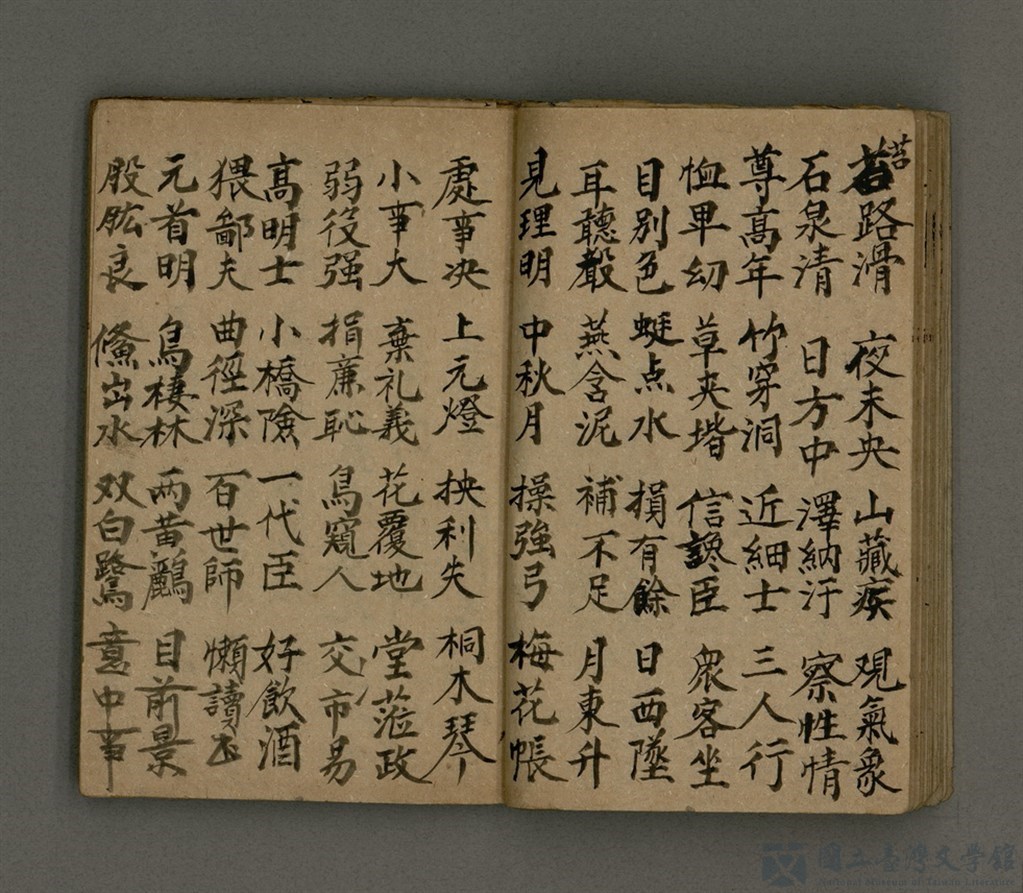 苔
若路滑 夜未央 山藏疾 观氣象
石泉清 日方中 澤納汙 察性情
尊高年 竹穿洞 近細士 三人行
恤卑幼 草夾堦 信讒臣 衆客坐
目别色 蜓点水 損有餘 日西墜
耳聽聲 燕含泥 補不足 月東升
見理明 中秋月 操強弓 梅花帳
處事决 上元燈 抰利矢 桐木琴
小事大 棄礼義 花覆地 堂蒞政
弱役强 捐亷恥 鳥窺人 交市易
高明士 小橋險 一代臣 好飲酒
猥鄙夫 曲徑深 百世師 懶讀
元首明 鳥棲林 两黄鸝 目前景
股肱良 鯈出水 双白鷺 意中事
國立臺灣文學館
National Museum of Taiwan Literature